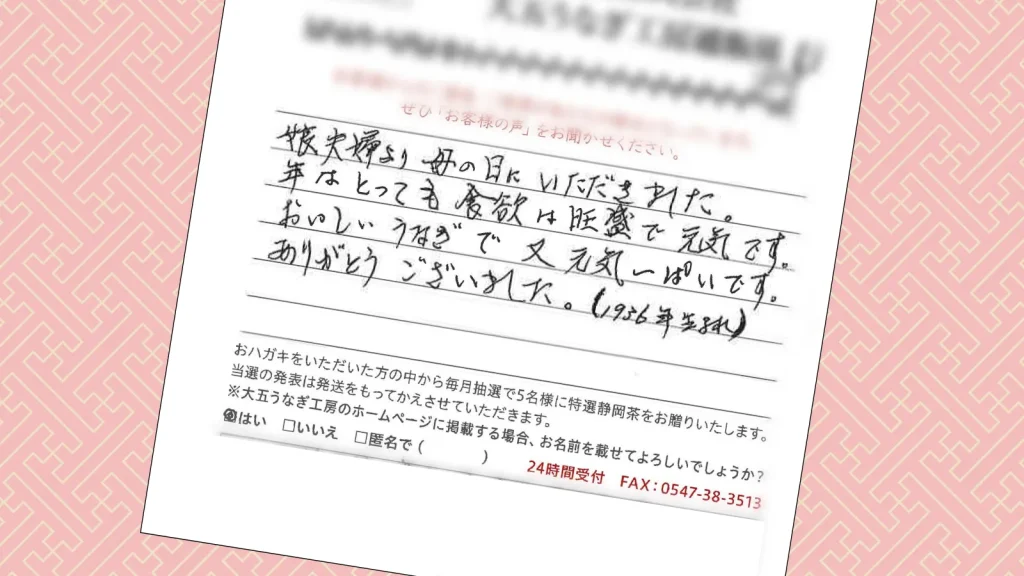 大五うなぎ工房
ぜひ「お客様の声」をお聞かせください。
娘夫婦より 母の日に いただきました。
年はとっても 食欲は旺盛で 元気です。
おいしい うなぎで 又 元気一ぱいです。
ありがとう ございました。(1936年生まれ)
おハガキをいただいた方の中から毎月抽選で5名様に特選静岡茶をお贈りいたします。
当選の発表は発送をもってかえさせていただきます。
※大五うなぎ工房のホームページに掲載する場合、お名前を載せてよろしいでしょうか?
はい □いいえ □匿名で( )
24時間受付 FAX:0547-38-3513